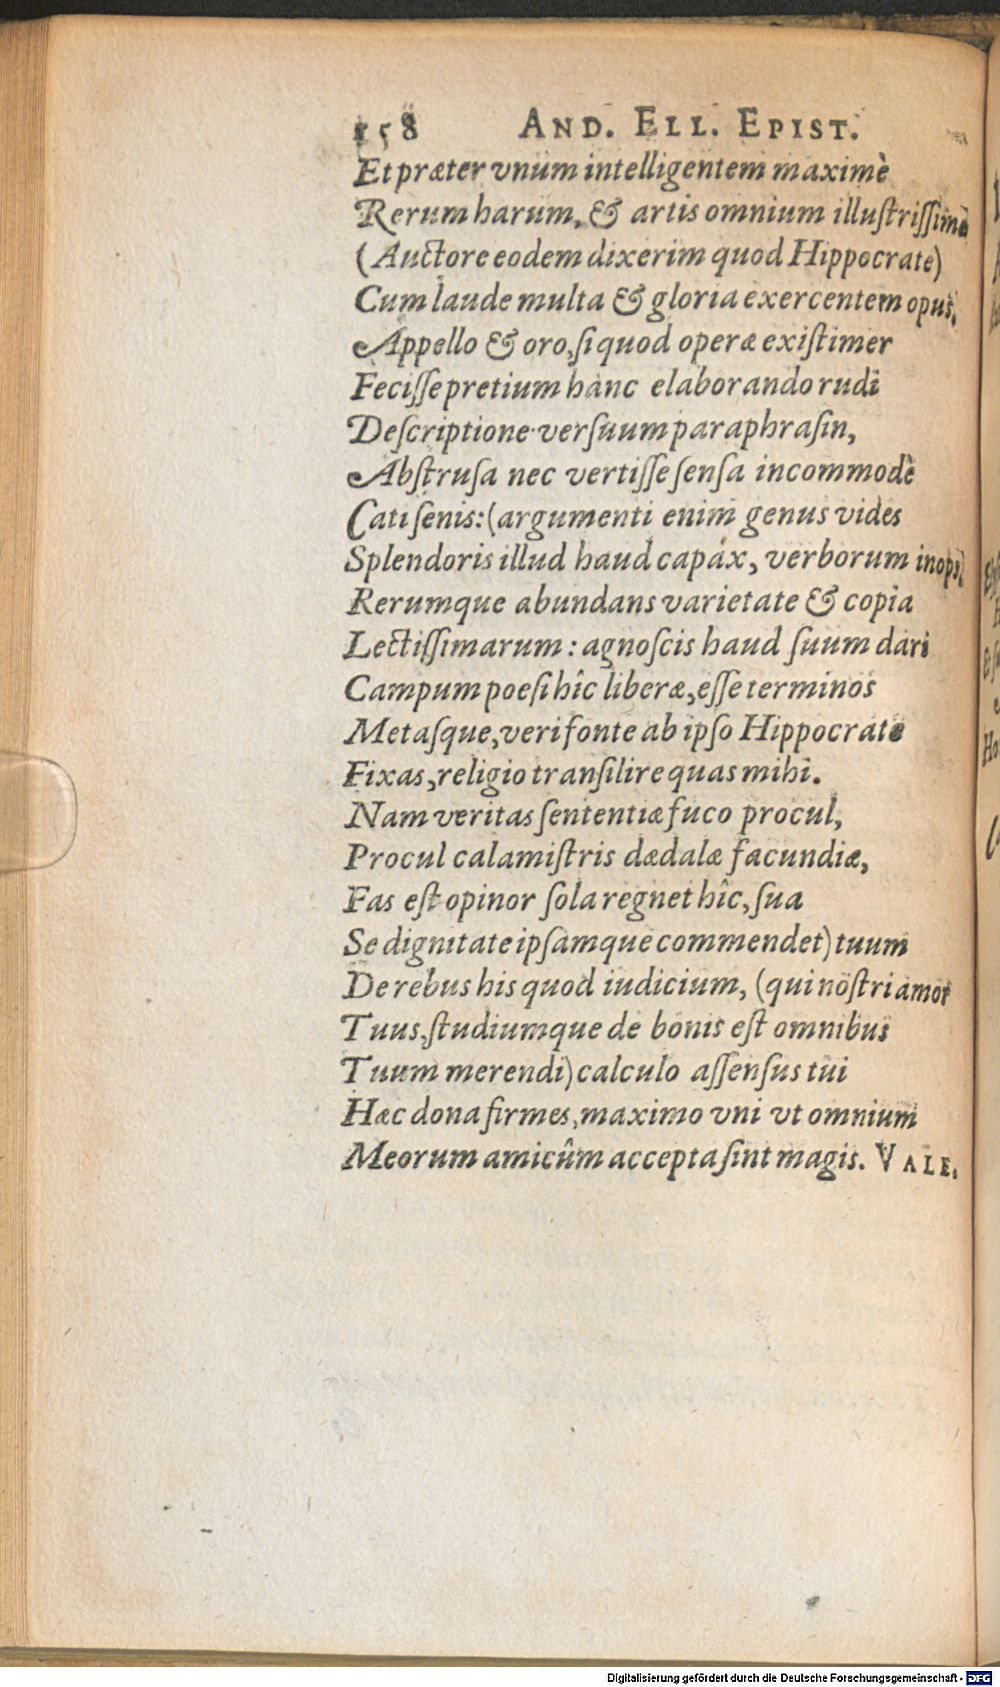 158 AND. ELL. EPIST.
Et præter vnum intelligentem maximè
Rerum harum, & artis omnium illustrissimæ
(Auctore eodem dixerim quod Hippocrate)
Cum laude multa & gloria exercentem opus,
Appello & oro, si quod operæ existimer
Fecisse pretium hanc elaborando rudi
Descriptione versuum paraphrasin,
Abstrusa nec vertisse sensa incommodè
Cati senis: (argumenti enim genus vides
Splendoris illud haud capax, verborum inops,
Rerumque abundans varietate & copia
Lectissimarum: agnoscis haud suum dari
Campum poesi hîc liberæ, esse terminos
Metasque, veri fonte ab ipso Hippocrate
Fixas, religio transilire quas mihi.
Nam veritas sententiæ fuco procul,
Procul calamistris dædalæ facundiæ,
Fas est opinor sola regnet hîc, sua
Se dignitate ipsamque commendet) tuum
De rebus his quod iudicium, (qui nostri amor
Tuus, studiumque de bonis est omnibus
Tuum merendi) calculo assensus tui
Hæc dona firmes, maximo vni vt omnium
Meorum amicûm accepta sint magis. VALE.
Digitalisierung gefördert durch die Deutsche Forschungsgemeinschaft - DFG